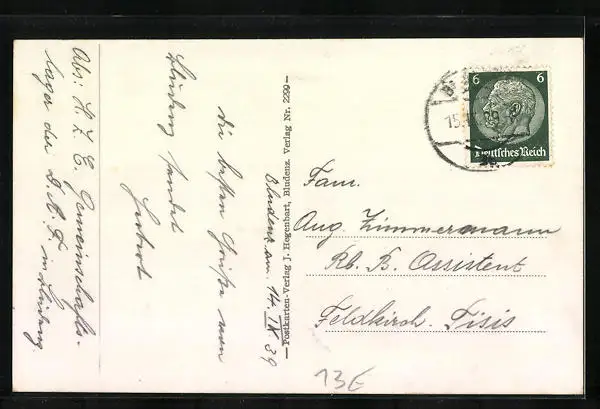 Abs: H. Z. E. Gemeinschafts-
lager der D. A. F. in Bludenz.
Bludenz am. 14. IX 39
Die besten Grüße von
Bludenz sendet
Postkarten-Verlag J. Hegenbart, Bludenz. Verlag Nr. 2299
6 6
Deutsches Reich
15. 39
Fam.
Aug. Zimmermann
Rb. B. Assistent
Feldkirch. Tisis
13E